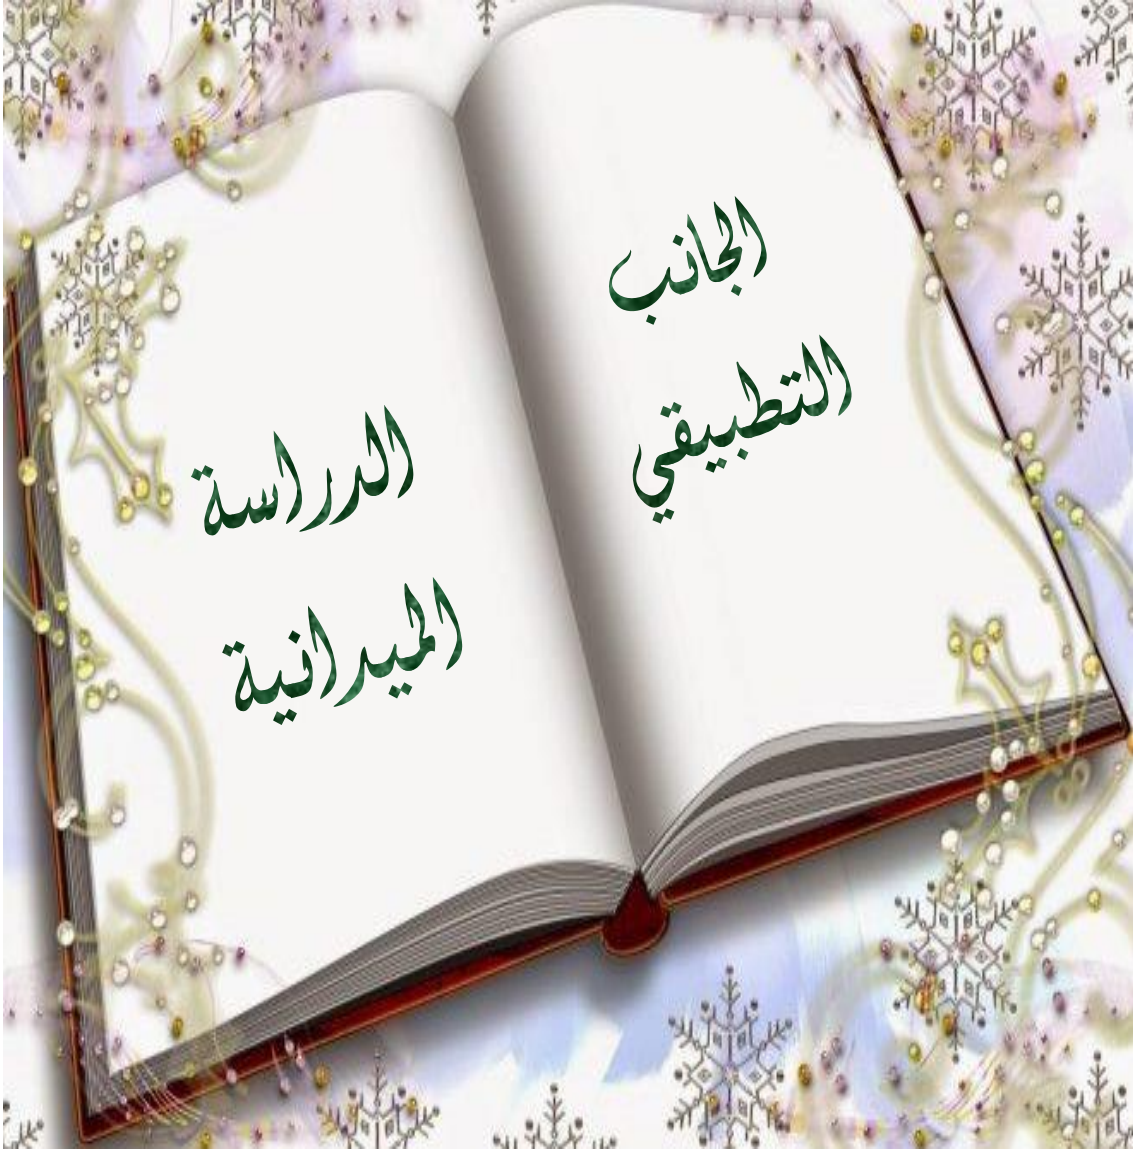 الجانب
التطبيقي
الدراسة
الميدانية